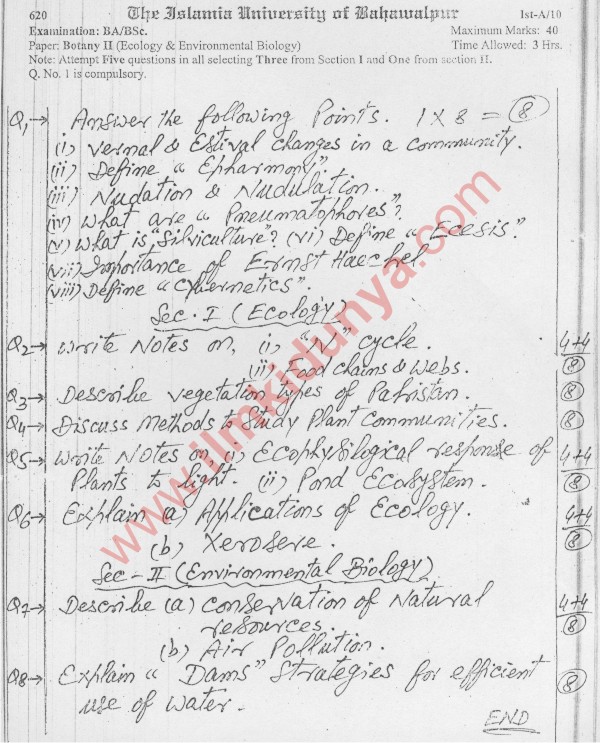 620 The Islamia University of Bahawalpur Ist-A/10
Examination: BA/BSc. Maximum Marks: 40
Paper: Botany II (Ecology & Environmental Biology) Time Allowed: 3 Hrs.
Note: Attempt Five questions in all selecting Three from Section I and One from section II.
Q. No. 1 is compulsory.
Q1→ Answer the following Points. 1 X 8 = 8
(i) Vernal & Estival changes in a community.
(ii) Define "Epharmony".
(iii) Nudation & Nudulation.
(iv) What are "Pneumatophores"?
(v) What is "Silviculture"? (vi) Define "Ecesis"
(vii) Importance of Ernst Haechel
(viii) Define "Cybernetics".
Sec. I (Ecology)
Q2→ Write Notes on, (i) "N" cycle. 4+4
(ii) Food chains & Webs. 8
Q3→ Describe vegetation types of Pakistan. 8
Q4→ Discuss Methods to Study Plant Communities. 8
Q5→ Write Notes on, (i) Ecophysilogical response of 4+4
Plants to light. (ii) Pond Ecosystem. 8
Q6→ Explain (a) Applications of Ecology. 4+4
(b) Xerosere. 8
Sec-II (Environmental Biology)
Q7→ Describe (a) Conservation of Natural 4+4
resources. 8
(b) Air Pollution.
Q8→ Explain "Dams" Strategies for efficient 8
use of water.
END
www.ilmkidunya.com